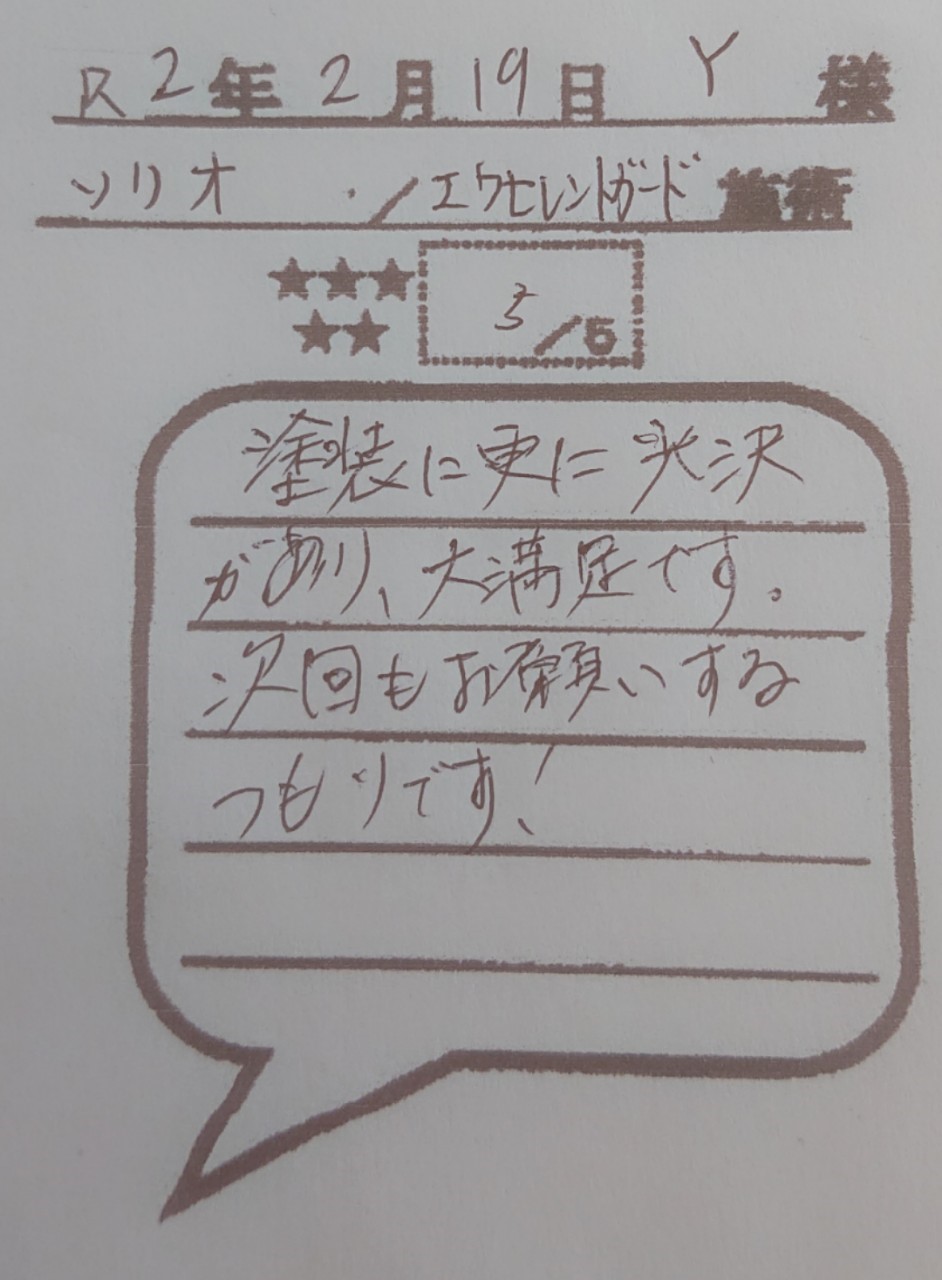 R2年2月19日 Y 様
ソリオ ・/エクセレントガード 施術
★★★
★★
5/5
塗装に更に光沢
があり、大満足です。
次回もお願いする
つもりです!